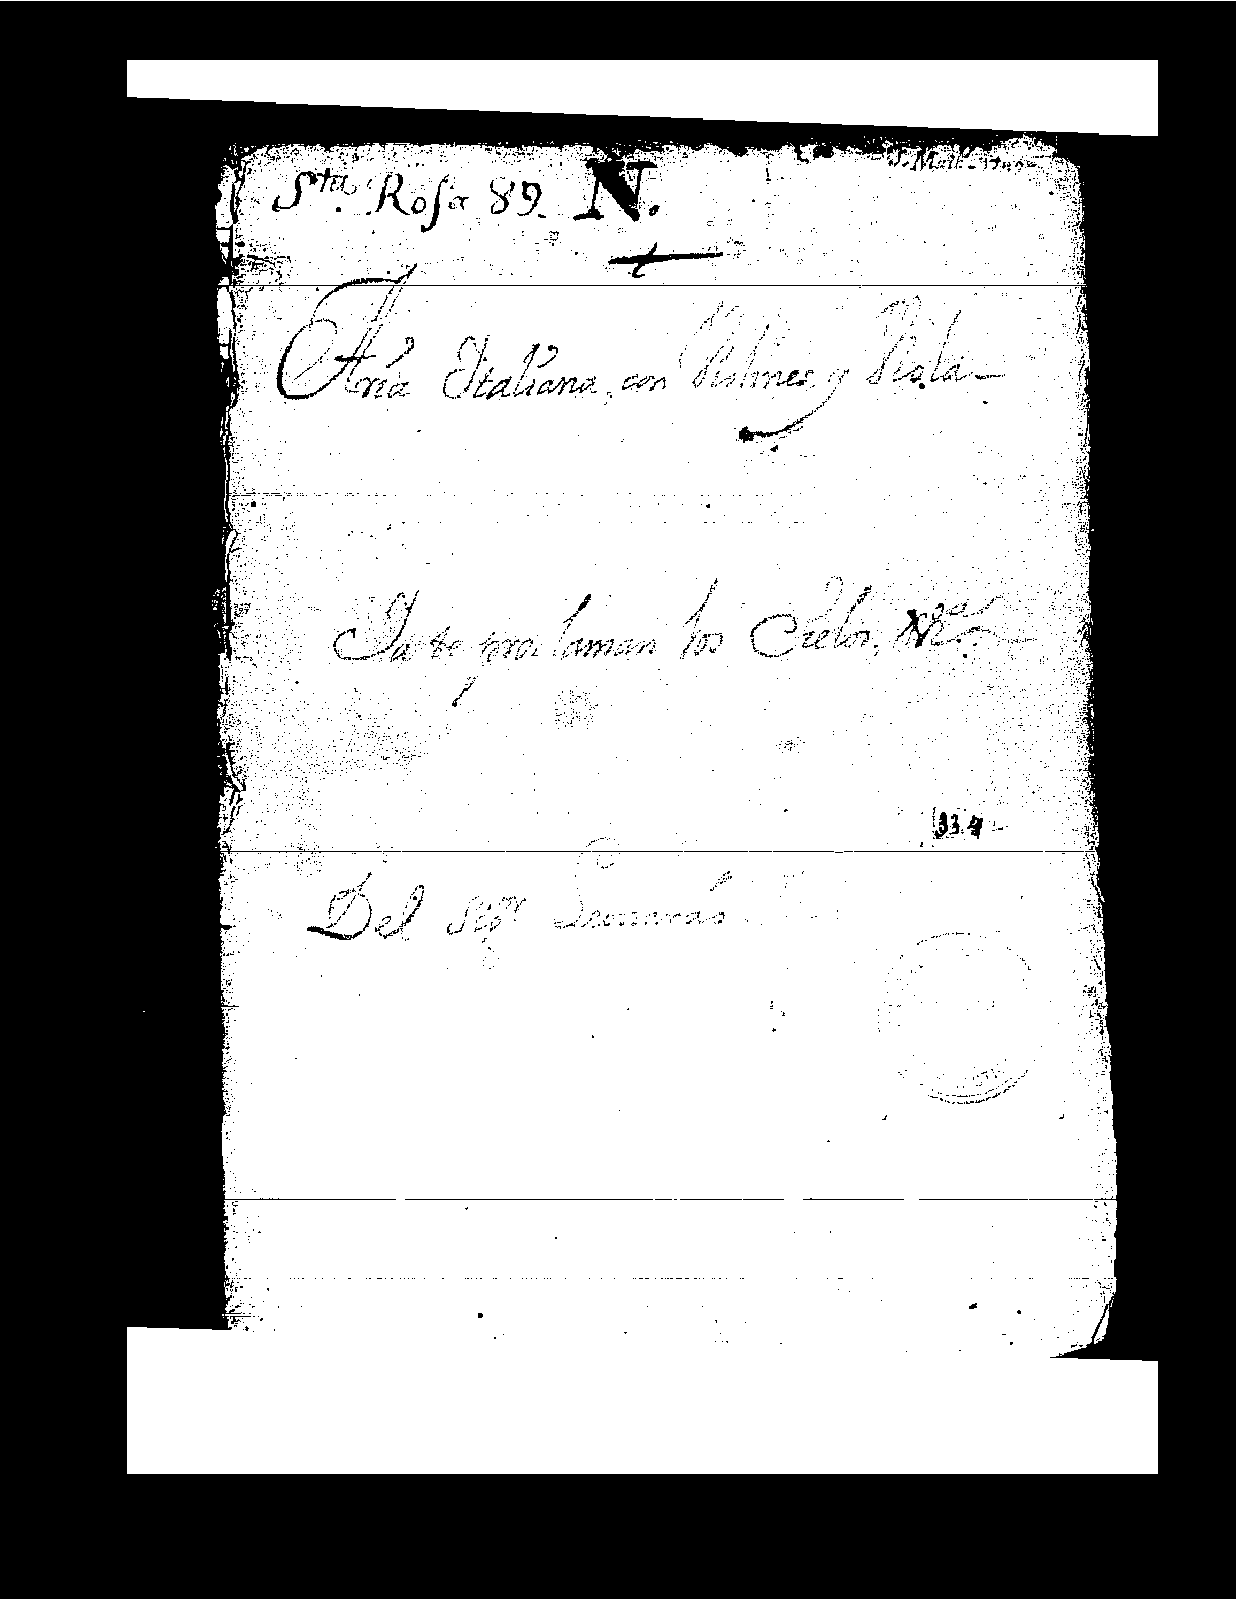 Sta. Rosa 89. N.
Aria Italiana, con Violines y Viola
Ya te proclaman los Cielos,
334
Del Sigr.